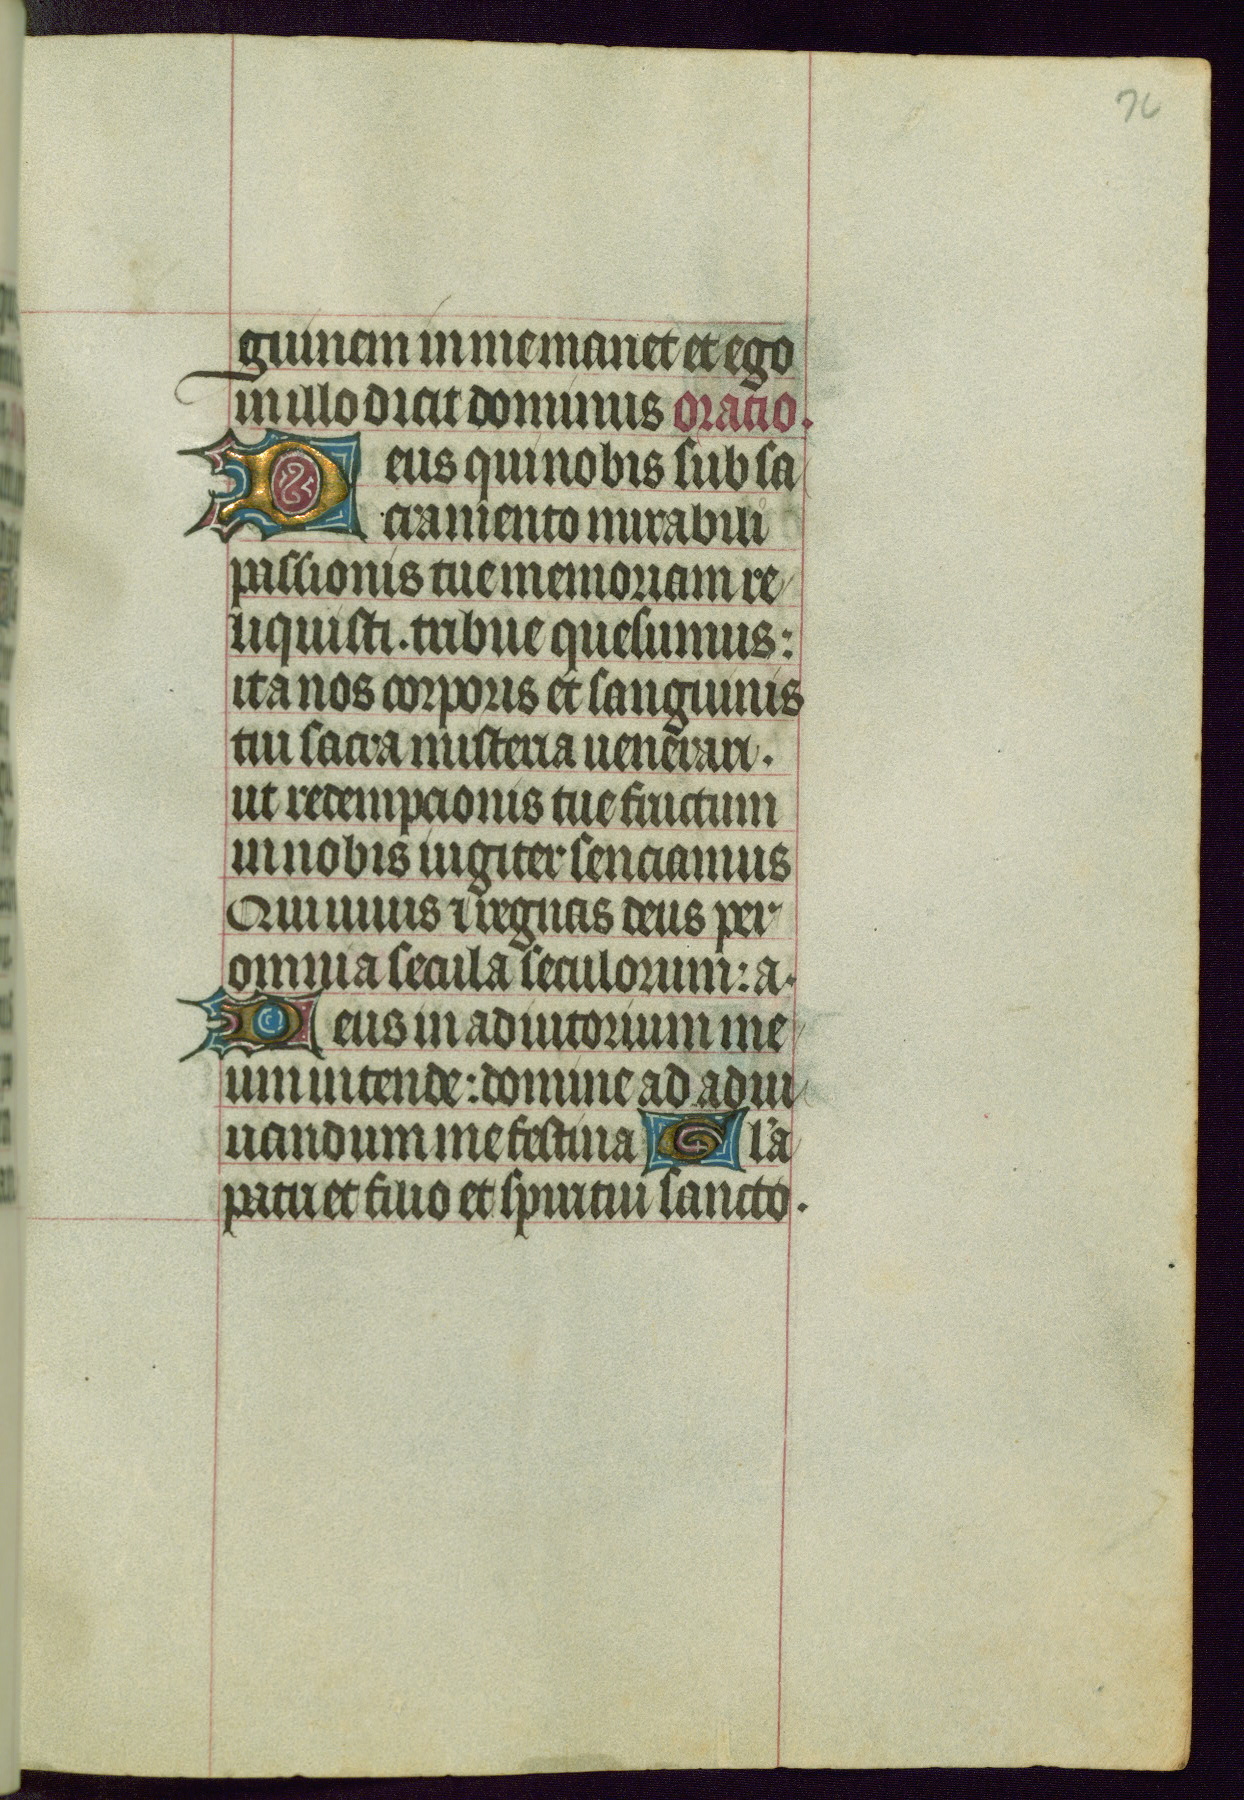 76
guinem in me manet et ego
in illo dicit dominus oratio.
Deus qui nobis sub sa
cramento mirabili
passionis tue memoriam re
liquisti. tribue quesumus:
ita nos corporis et sanguinis
tui sacra misteria uenerari.
ut redempcionis tue fructum
in nobis iugiter senciamus
Qui uiuis ⁊ regnas deus per
omnia secula seculorum: a.
Deus in adiutorium me
um intende: domine ad adiu
uandum me festina Gl'a
patri et filio et spiritui sancto.